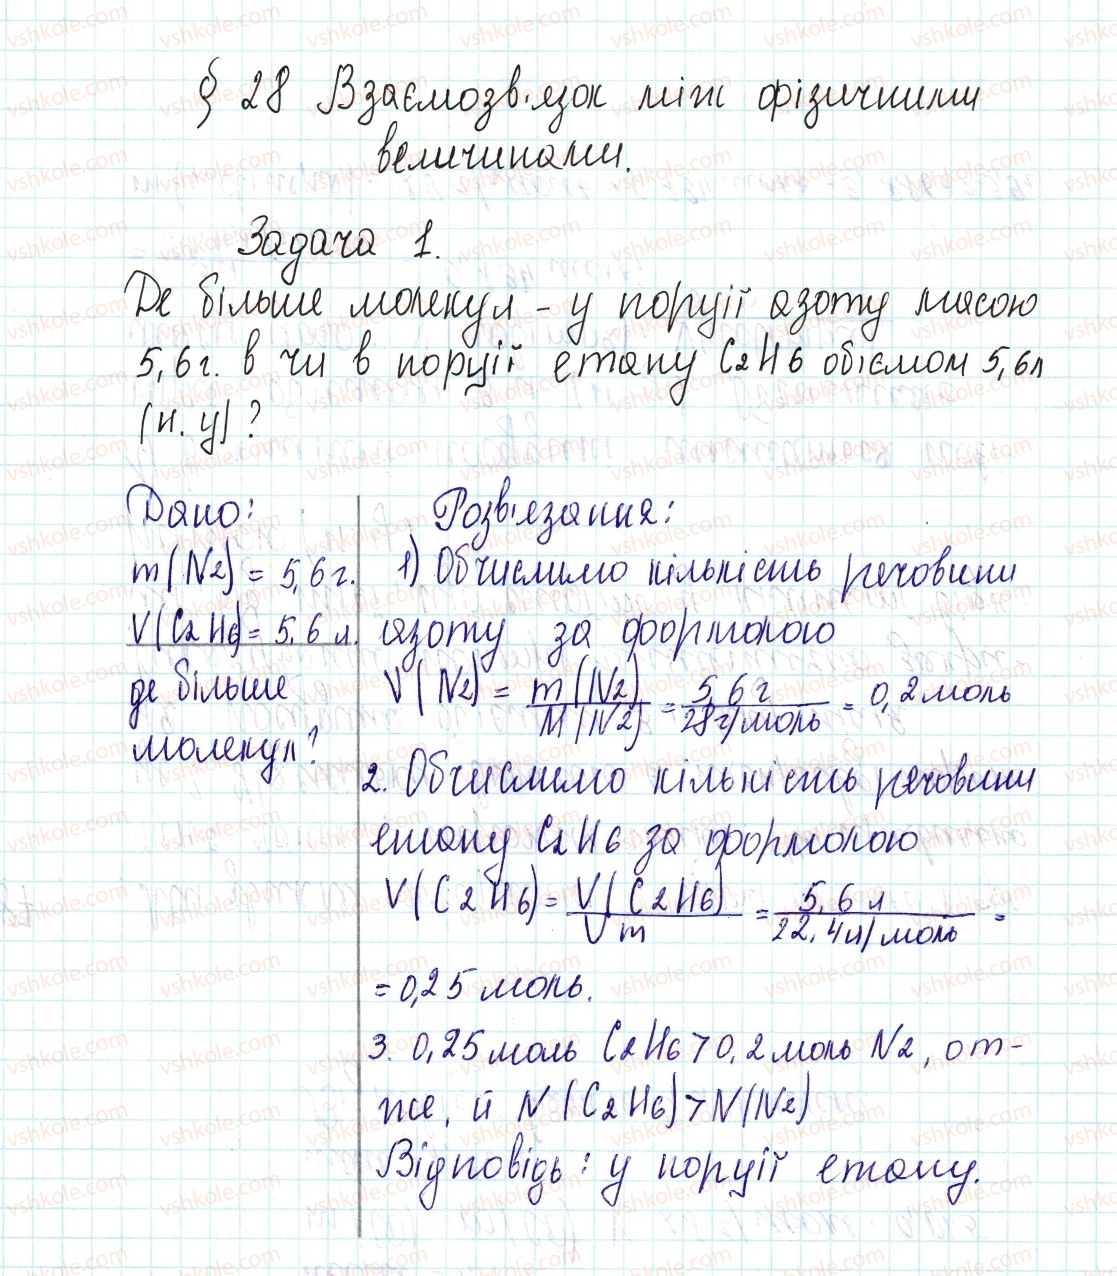 § 28 Взаємозв'язок між фізичними
величинами.
Задача 1.
Де більше молекул - у порції азоту масою
5,6 г. в чи в порції етану C2H6 об'ємом 5,6л
(н. у) ?
Дано:
m(N2) = 5,6 г.
V(C2H6) = 5,6 л.
де більше
молекул?
Розв'язання:
1) Обчислимо кількість речовини
азоту за формолою
V(N2) = m(N2) / M(N2) = 5,6 г / 28г/моль = 0,2 моль
2. Обчислимо кількість речовини
етану C2H6 за формолою
V(C2H6) = V(C2H6) / Vm = 5,6 л / 22,4л/моль =
= 0,25 моль.
3. 0,25 моль C2H6 > 0,2 моль N2, от-
же, й N(C2H6) > N(N2)
Відповідь: у порції етану.
vshkole.com